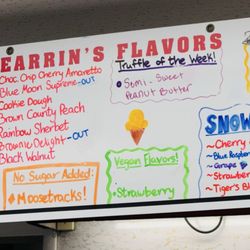 EARRIN'S FLAVORS
Choc. Chip Cherry Amaretto
Blue Moon Supreme -OUT
Cookie Dough
Brown County Peach
Rainbow Sherbet
Brownie Delight -OUT
Black Walnut
No Sugar Added:
Moosetracks!
Truffle of the Week!
Semi-Sweet
Peanut Butter
Vegan Flavors!
Strawberry
SNOW
~Cherry
~Blue Raspb
~Grape
~Strawberr
~Tiger's B